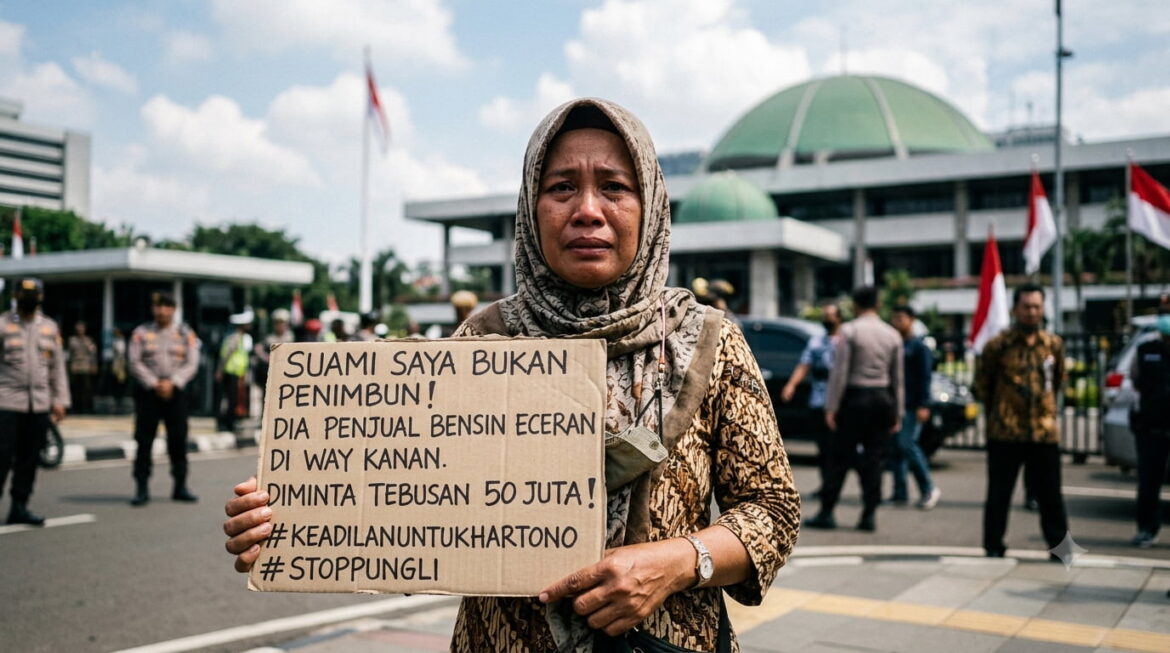 SUAMI SAYA BUKAN
PENIMBUN!
DIA PENJUAL BENSIN ECERAN
DI WAY KANAN.
DIMINTA TEBUSAN 50 JUTA!
#KEADILANUNTUKHARTONO
#STOPPUNGLI